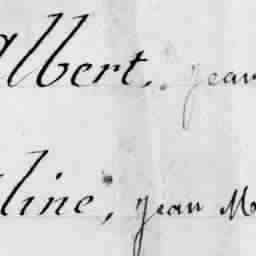 Albert, jean
line, jean M